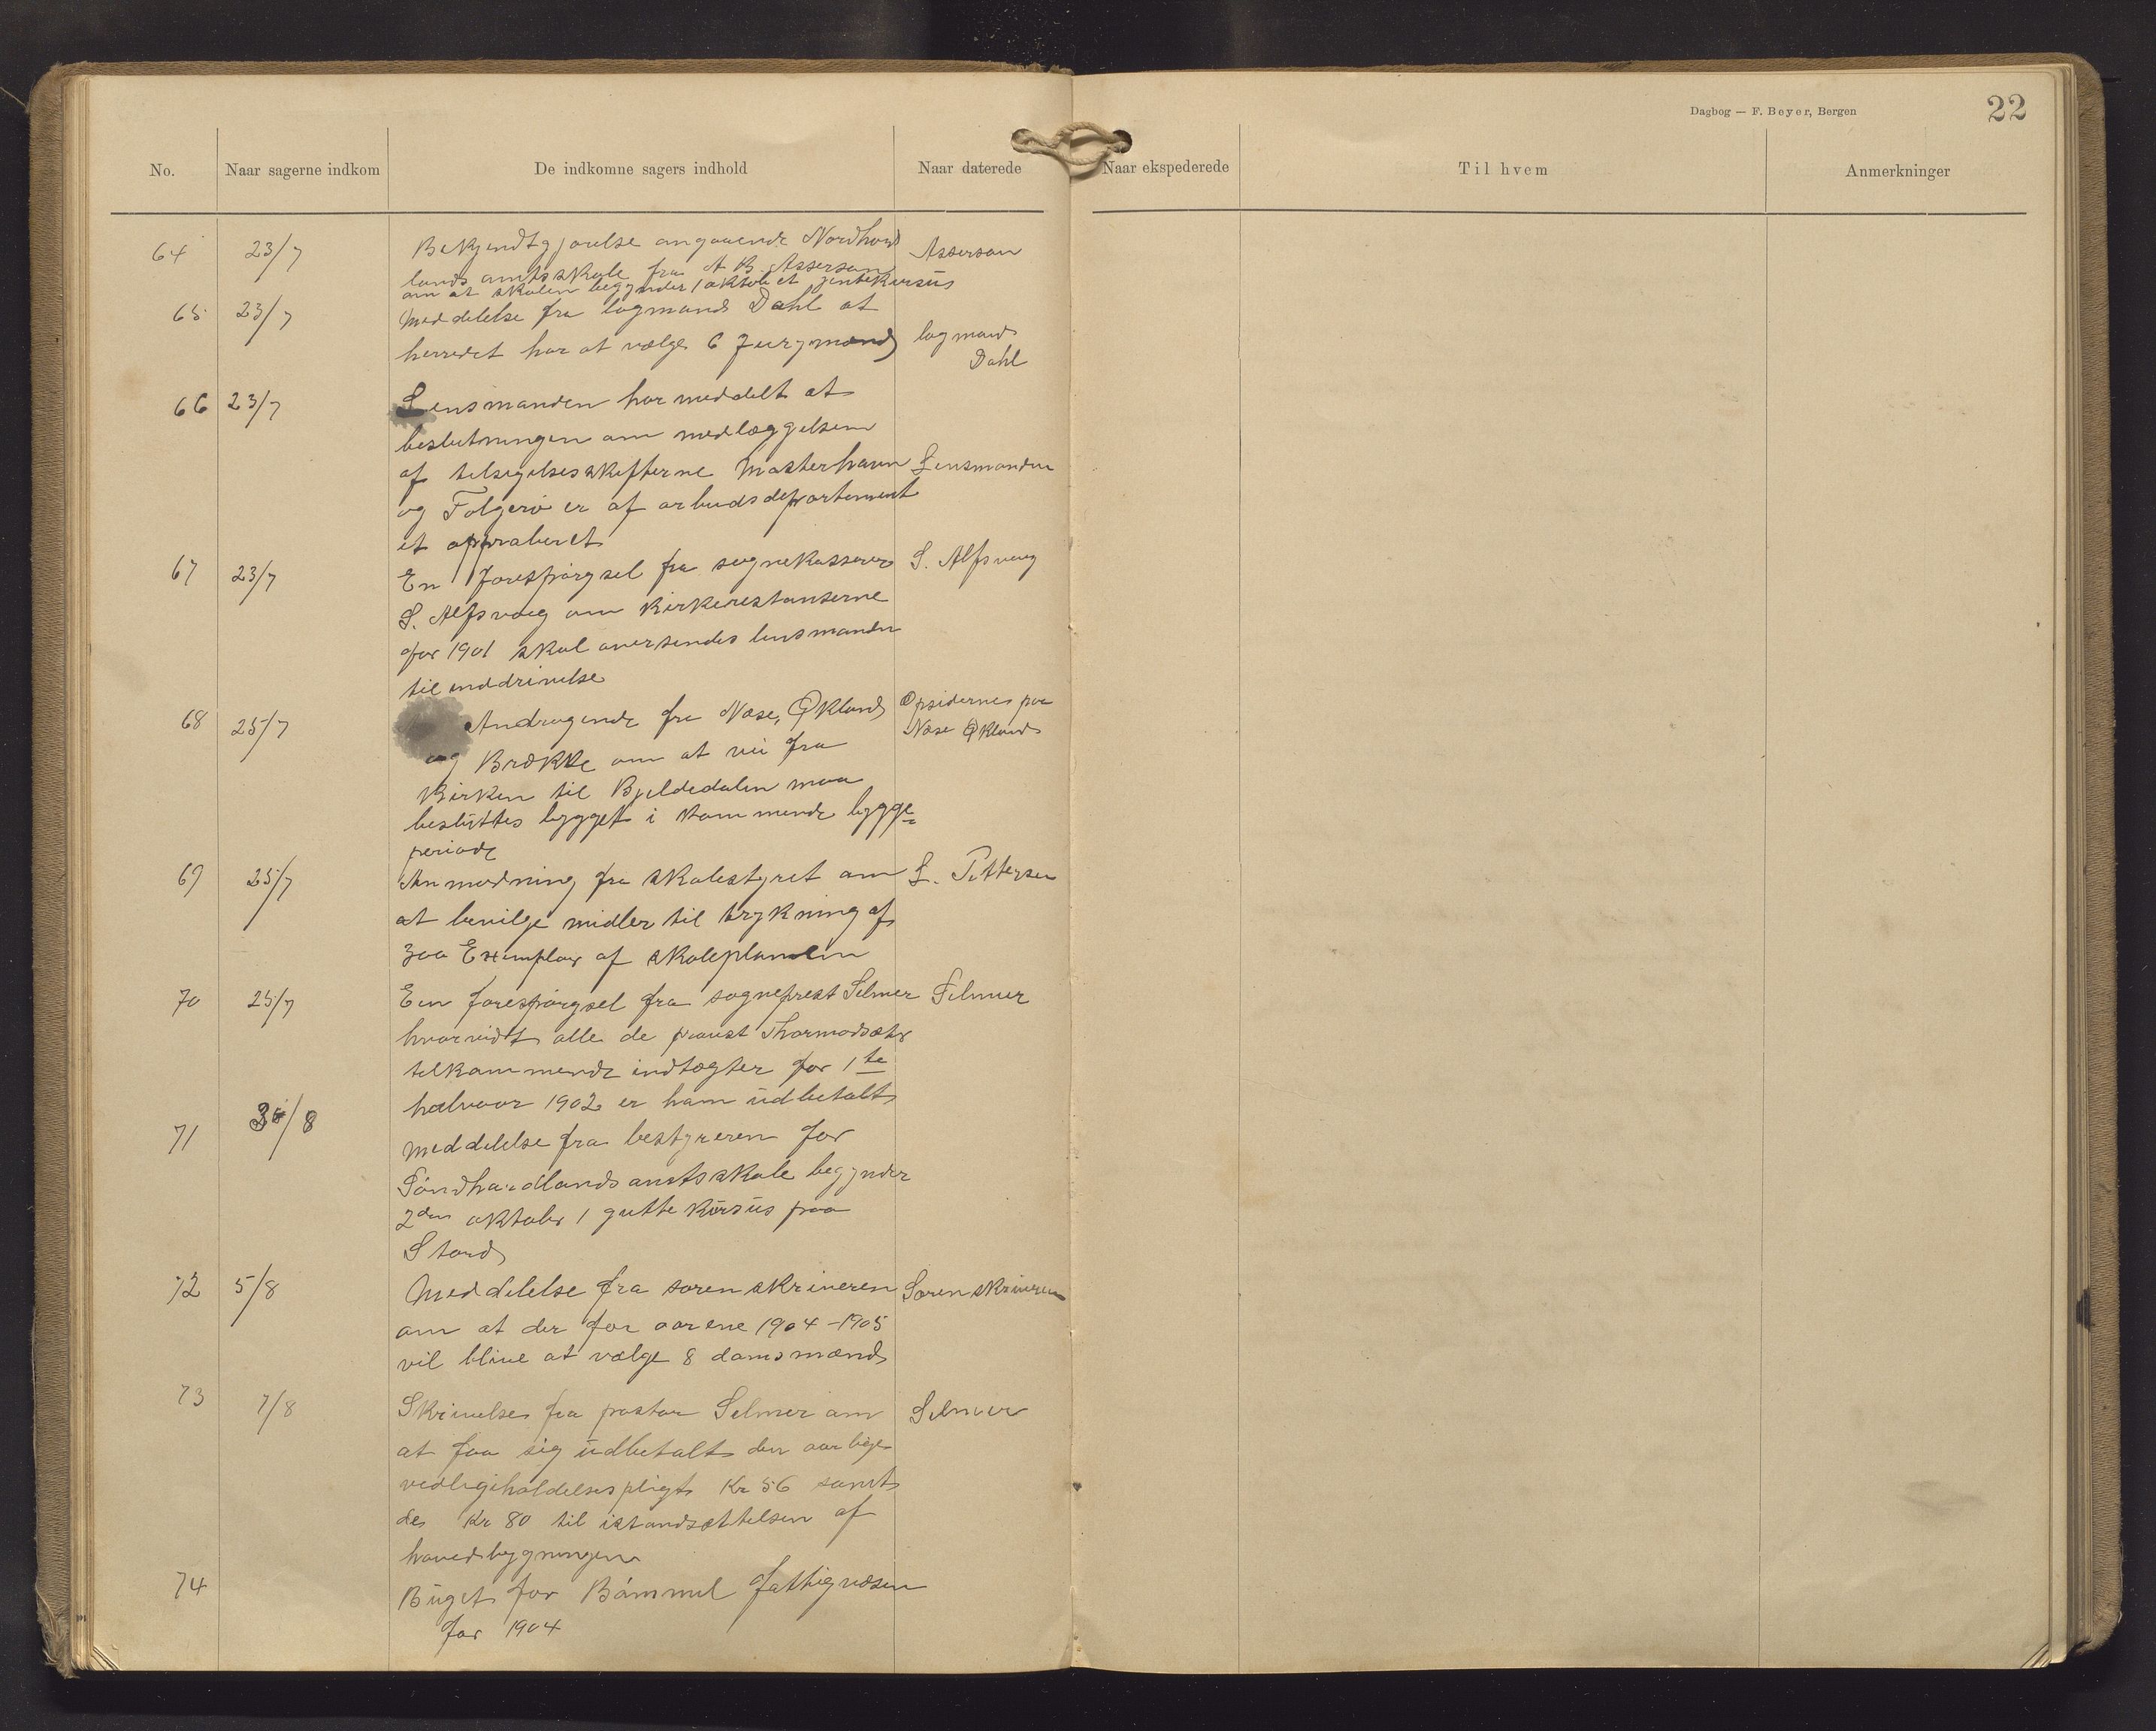 Dagbog — F. Beyer, Bergen
22
No. Naar sagerne indkom De indkomne sagers indhold Naar daterede
Naar ekspederede Til hvem Anmerkninger
64 23/7 Bekjendtgjørelse angaaende Nordhord Asserson
lands amtsskole fra A B. Asserson
om at skolen begynder 1 oktob et jentekursus
65 23/7 Meddelelse fra lagmand Dahl at
herredet har at vælge 6 Jurymænd lagmand
Dahl
66 23/7 Lensmanden har meddelt at
beslutningen om nedlæggelsen
af tilsigelsesskifterne Mosterhavn Lensmanden
og Folgerø er af arbeidsdepartement
et approberet
67 23/7 En forespørgsel fra sognekasserer S. Alfsvaag
S. Alfsvaag om kirkerestanserne
for 1901 skal oversendes lensmanden
til inddrivelse
68 25/7 Andragende fra Næse, Økland Opsidernes paa
Næse Økland
og Brække om at vei fra
kirken til Bjeldedalen maa
besluttes bygget i kommende bygge=
periode
69 25/7 Anmodning fra skolestyret om L. Pettersen
at bevilge midler til trykning af
300 Exemplar af skoleplanen
70 25/7 En forespørgsel fra sogneprest Selmer Selmer
hvorvidt alle de provst Thormodsæter
tilkommende indtægter for 1te
halvaar 1902 er ham udbetalt
71 3/8 Meddelelse fra bestyreren for
Søndhordlands amtsskole begynder
2den oktober 1 guttekursus paa
Stord
72 5/8 Meddelelse fra sorenskriveren Sorenskriveren
om at der for aarene 1904-1905
vil blive at vælge 8 domsmænd
73 7/8 Skrivelse fra pastor Selmer om Selmer
at faa sig udbetalt den aarlige
vedligeholdelsespligt Kr 56 samt
de Kr 80 til istandsættelsen af
hovedbygningen
74 Buget for Bømmel fattigvæsen
for 1904